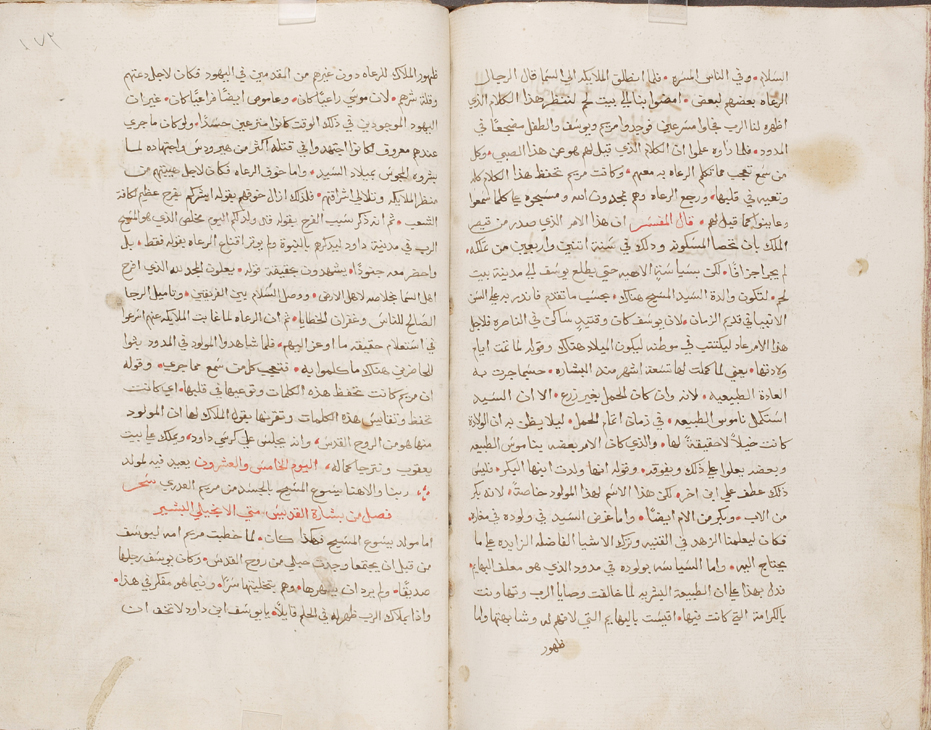 السلام • وفي الناس المسره • فلما انطلق الملايكه الى السما قال الرجال
الرعاه بعضهم لبعض • امضوا بنا الى بيت لحم لننظر هذا الكلام الذي
اظهره لنا الرب فجاوا مسرعين فوجدوا مريم ويوسف والطفل مضجعًا في
المدود • فلما راوه علموا ان الكلام الذي قيل لهم هو عن هذا الصبي • وكل
من سمع تعجب مما تكلم الرعاه به معهم • وكانت مريم تحفظ هذا الكلام كله
وتعيه في قلبها • ورجع الرعاه وهم يمجدون الله ومسبحيه على كلما سمعوا
وعاينوا كما قيل لهم • قال المفسر ان هذا الامر الذي صدر من قيصر
الملك بان تحصا المسكونه وذلك في سنة اتنين واربعين من تملكه
لم يجر اجزافًا • لكن بسياسة الاهيه حتى يطلع يوسف الى مدينة بيت
لحم • لتكون والدة السيد المسيح هناك • بحسب ما تقدم فاندر به على السن
الانبيا في قديم الزمان • لان يوسف كان وقتيدٍ ساكن في الناصره فلاجل
هذا الامر عاد ليكتتب في موطنه ليكون الميلاد هناك وقوله لما تمت ايام
ولادتها • يعني لما كملت لها تسعة اشهر منذ البشاره • حسبما جرت به
العادة الطبيعيه • لانه وان كان الحمل بغير زرع • الا ان السيد
استكمل ناموس الطبيعه • في زمان اتمام الحمل • ليلا يظن به ان الولادة
كانت خيالاً لا حقيقةً لها • والذي كان الامر بعضه بناموس الطبيعه
وبعضه يعلوا على ذلك ويفوقه • وقوله انها ولدت ابنها البكر • فليس
ذلك عطف على ابن اخر • لكن هذا الاسم لهذا المولود خاصةً • لانه بكر
من الاب • وبكر من الام ايضًا • واما غرض السيد في ولوده في مغاره
فكان ليعلمنا الزهد في القنيه وترك الاشيا الفاضله الزايده على ما
يحتاج اليه • واما السياسه بولوده في مدود الذي هو معلف البهايم
فدل بهذا على ان الطبيعة البشريه لما خالفت وصايا الرب وتهاونت
بالكرامة التي كانت فيها • اقيست بالبهايم التي لا فهم لها وشابهتها ولما
ظهور
١٧٣
ظهور الملاك للرعاه دون غيرهم من المقدمين في اليهود فكان لاجل دعتهم
وقلة شرهم • لان موسى راعيًا كان • وعاموص ايضًا راعيًا كان • غير ان
اليهود الموجودين في ذلك الوقت كانوا مترعين حسدًا • ولو كان ما جري
عندهم معروف لكانوا اجتهدوا في قتله اكثر من هيرودس واجتهاده لما
بشروه المجوس بميلاد السيد • واما خوف الرعاه فكان لاجل هيبتهم من
منظر الملايكه وتلالي اشراقهم • فلذلك ازال خوفهم بقوله ابشركم بفرح عظيم لكافة
الشعب • ثم انه ذكر سبب الفرح بقوله قد ولد لكم اليوم مخلص الذي هو المسيح
الرب في مدينة داود ليذكرهم بالنبوة ولم يوقر اقناع الرعاه بقوله فقط • بل
واحضر معه جنودًا • يشهدون بحقيقة قوله • يعلون المجد لله الذي افرح
اهل السما بخلاصه لاهل الارض • ووصل السلام بين الفريقين • وتاميل الرجا
الصالح للناس وغفران الخطايا • ثم ان الرعاه لما غابت الملايكه عنهم اسرعوا
في استعلام حقيقه ما اوعز اليهم • فلما شاهدوا المولود في المدود بثوا
للحاضرين هناك ما كلموا به • فتعجب كل من سمع مما جري • وقوله
ان مريم كانت تحفظ هذه الكلمات وتوعيها في قلبها • اي كانت
تحفظ وتقايس بهذه الكلمات وتقرنها بقول الملاك لها ان المولود
منها هو من الروح القدس • وانه يجلس على كرسي داود • ويملك على بيت
يعقوب ونترجا كماله • اليوم الخامس والعشرون يعيد فيه لمولد
ربنا والاهنا يسوع المسيح بالجسد من مريم العدري سَحَر
فصل من بشارة القديس متي الانجيلي البشير
اما مولد يسوع المسيح فهكذا كان • لما خطبت مريم امه ليوسف
من قبل ان يجتمعا وجدت حبلى من روح القدس • وكان يوسف رجلها
صديقًا • ولم يرد ان يشهرها • وهم بتخليتها سرًا • وفيما هو مفكر في هذا •
واذا بملاك الرب ظهر له في الحلم قايلاً • يا يوسف ابن داود لا تخف ان